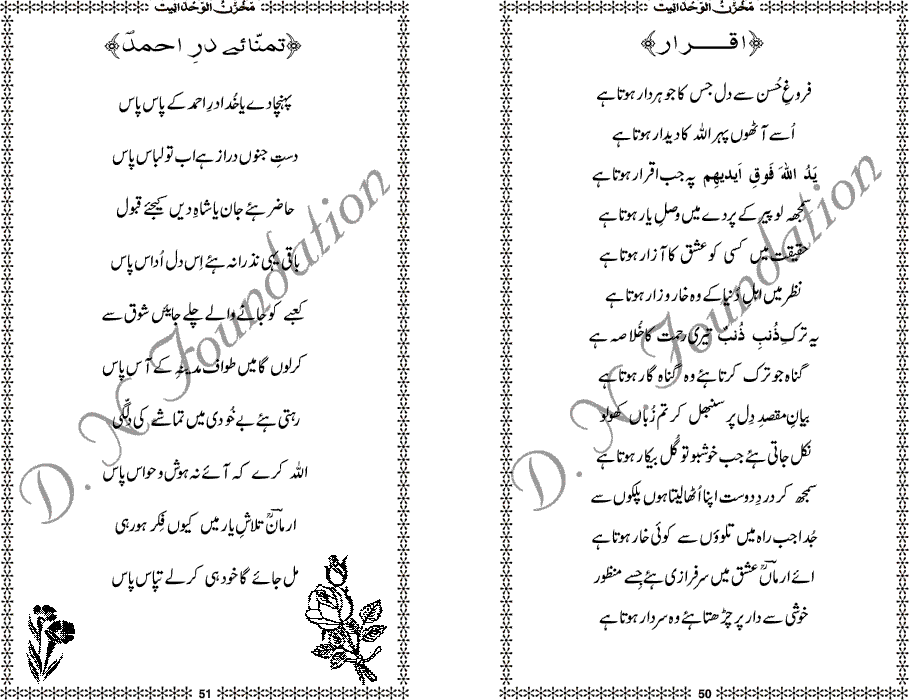 مخزن الوحدانیت
﴿اقرار﴾
فروغِ حُسن سے دل جس کا جوہر دار ہوتا ہے
اُسے آٹھوں پہر اللہ کا دیدار ہوتا ہے
یَدُ اللہَ فَوقِ اَیدیھِم پہ جب اقرار ہوتا ہے
سمجھ لو پیر کے پردے میں وصلِ یار ہوتا ہے
حقیقت میں کسی کو عشق کا آزار ہوتا ہے
نظر میں اہلِ دُنیا کے وہ خار و زار ہوتا ہے
یہ ترکِ ذُنبِ ذُنبٌ تیری رحمت کا خُلاصہ ہے
گناہ جو ترک کرتا ہئے وہ گناہ گار ہوتا ہے
بیانِ مقصدِ دِل پر سنبھل کر تم زُباں کھولو
نکل جاتی ہئے جب خوشبو تو گُل بیکار ہوتا ہے
سمجھ کر دردِ دوست اپنا اُٹھا لیتا ہوں پلکوں سے
جُدا جب راہ میں تلوؤں سے کوئی خار ہوتا ہے
ائے ارماںؔ عشق میں سرفرازی ہئے جسے منظور
خوشی سے دار پر چڑھتا ہئے وہ سردار ہوتا ہے
50
مخزن الوحدانیت
﴿تمنّائے درِ احمدؐ﴾
پہنچا دے یا خُدا درِ احمد کے پاس پاس
دستِ جنوں دراز ہے اب تو لباس پاس
حاضر ہئے جان یا شاہِ دیں کیجئے قبول
باقی یہی نذرانہ ہئے اِس دل اُداس پاس
کعبے کو جانے والے چلے جایٔں شوق سے
کرلوں گا میں طواف مدینہِ کے آس پاس
رہتی ہئے بے خُودی میں تماشے کی دِلّگی
اللہ کرے کہ آئے نہ ہوش و حواس پاس
ارماںؔ تلاشِ یار میں کیوں فِکر ہو رہی
مل جائے گا خود ہی کرلے تپاس پاس
51
D. N Foundation
D. N Foundation